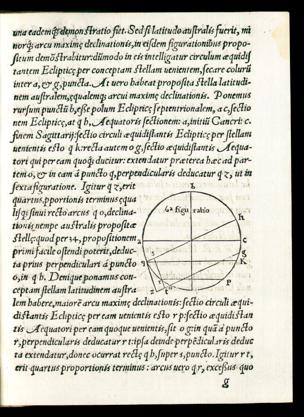 una eademq́; demonstratio fiet. Sed si latitudo australis fuerit, mi
norq́; arcu maximę declinationis, in eisdem figurationibus propo-
situm demōstrabitur: dūmodo in eis intelligatur circulum æquidi
stantem Eclipticę per conceptam stellam uenientem, secare colurū
inter a, & g, puncta. At uero habeat proposita stella latitudi-
nem australem, equalemq; arcui maximę declinationis. Ponemus
rursum punctū b, esse polum Eclipticę septentrionalem, a c, sectio
nem Eclipticę, at q b. Aequatoris sectionem: a, initiū Cancri: c.
finem Sagittarij: sectio circuli æquidistantis Eclipticę per stellam
uenientis esto q k. recta autem o g, sectio æquidistantis Aequa-
tori qui per eam quoq; ducitur: extendatur præterea b a c ad par-
tem o, & in eam à puncto q, perpendicularis deducatur q z, ut in
sexta figuratione. Igitur q z, erit
quartus, pportionis terminus equa
lisq́; sinui recto arcus q o, declina-
tionis nempe australis propositæ
stellę: quod per 14, propositionem
primi facile ostendi poterit, deduc-
ta prius perpendiculari à puncto
o, in q b. Deniq́ue ponamus con-
ceptam stellam latitudinem austra
lem habere, maiorē arcu maximę declinationis: sectio circuli æqui-
distantis Eclipticę per eam uenientis esto r p: sectio æquidistan
tis Aequatori per eam quoque uenientis, sit o g: in quā à puncto
r, perpendicularis deducatur r t: ipsa deinde perpēdicularis deduc
ta extendatur, donec occurrat rectę q b, super s, puncto. Igitur r t,
erit quartus proportionis terminus: arcus uero q r, excessus quo
g
6a figu ratio
b
h
c
g
K
p